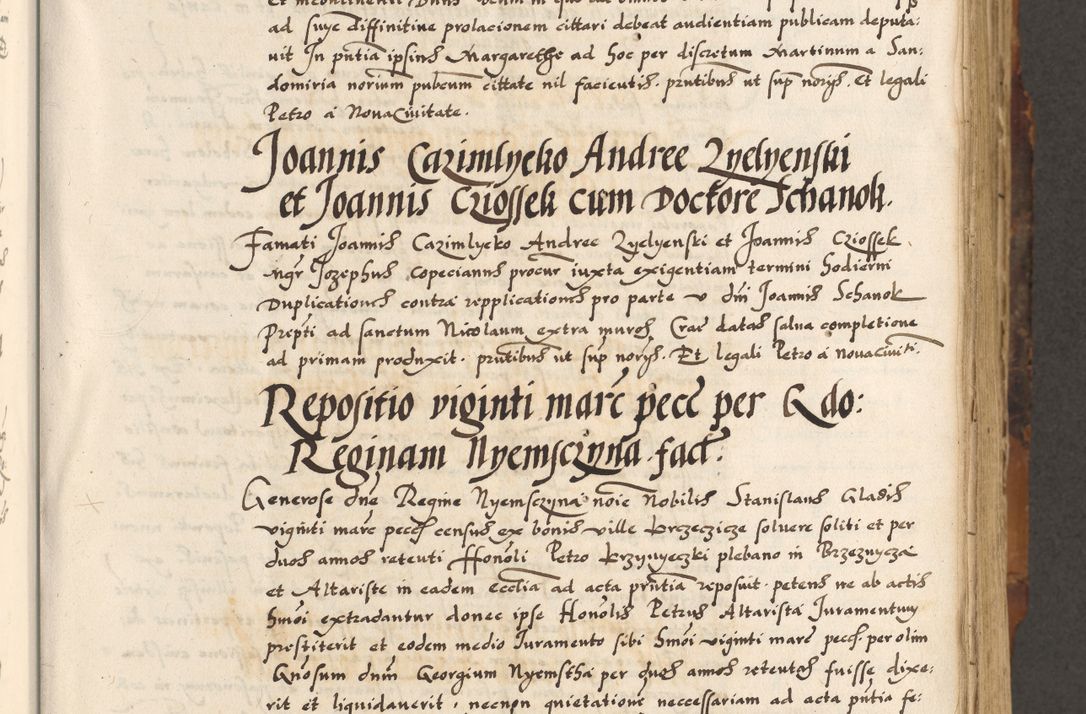 ad suye diffinitiue prolacionem cittari debeat audientiam publicam deputa:
uit In pntia ipsius Margarethe ad hoc per discretum Martinum a San:
domiria norium pubcum cittate nil facientis. pntibus ut sup noris. Et legali
Petro a Nova Civitate.
Joannis Cazimlycko Andree Zyelyenski
et Joannis Cziossek cum Doctore Schanok.
Famati Joannis Cazimlycko Andree Zyelyenski et Joannis Cziossek
mgr Jozephus Copecianus procur iuxta exigentiam termini hodierni
Duplicationes contra repplicationes pro parte v dni Joannis Schanok
Prepti ad sanctum Nicolaum extra muros Crac datas salua completione
ad primam produxit. pntibus ut sup noris. Et legali Petro a nova civiti.
Repositio viginti marc pecc per G do:
Reginam Nyemsczyna fact:
Generose dne Regine Nyemsczyna noie Nobilis Stanislaus Gladis
viginti marc pecc census ex bonis ville Krzeczicze soluere soliti et per
duos annos retenti Honoli Petro Krzyvyeczki plebano in Brzeznycza
et Altariste in eadem ecclia ad acta pntia reposuit. petens ne ab actis
hmoi extradantur donec ipse Honolis Petrus Altarista Juramentum
prestiterit et eodem medio Juramento sibi hmoi viginti marc pecc per olim
Gnosum dnm Georgium Nyemstha per duos annos retentas fuisse dixe:
rit et liquidaverit. necnon quietationem neccessariam ad acta pntia fe: